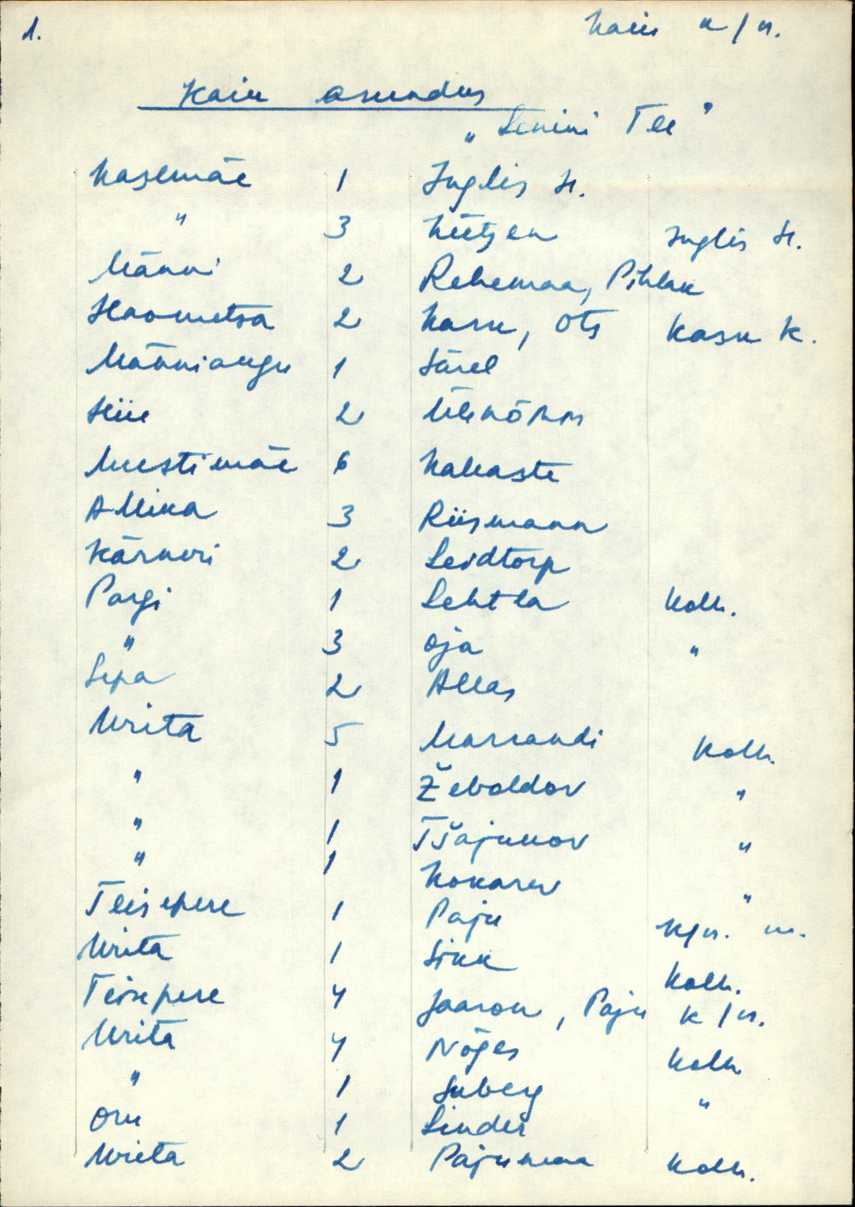 1. Kaiu k/n.
Kaiu asundus
"Lenini Tee"
Kasemäe 1 Inglis H.
" 3 Inglis H.
Männi 2 Rehemaa, Pihlak
Haometsa 2 Kasu, Ots Kasu K.
Männiaugu 1 Särel
Hiie 2
Mustimäe 6 Kakaste
A-Miku 3 Riismann
Kärneri 2 Leidtorp
Pargi 1 Lehtla Kolh.
" 3 Oja "
Sepa 2 Allas
Urita 5 Kolh.
" 1 Žeboldov "
" 1 Tšajunov "
" 1 Kokarev "
Teisepere 1 Paju k/n.
Urita 1 Sikk Kolh.
Teisepere 4 Jaason, Paju k/n.
Urita 4 Nõges Kolh
" 1 Suberg "
Oru 1 Linder
Urita 2 Pajumaa Kolh.